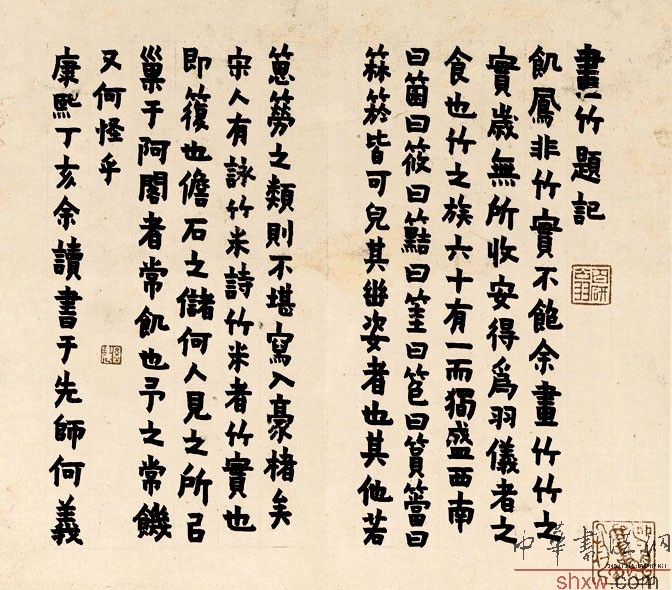 畫竹題記
飢鳳非竹實不飽余畫竹竹之
實歲無所收安得爲羽儀者之
食也竹之族六十有一而獨盛西南
曰箘曰筱曰曰曰笆曰篔簹曰
箖箊皆可皃其幽姿者也其他若
簩之類則不堪寫入豪楮矣
宋人有詠竹米詩竹米者竹實也
即也儋石之儲何人見之所㠯
巢于阿閣者常飢也予之常饑
又何怪乎
康熙丁亥余讀書于先師何義
百研翁
中華書法網
shxw.com